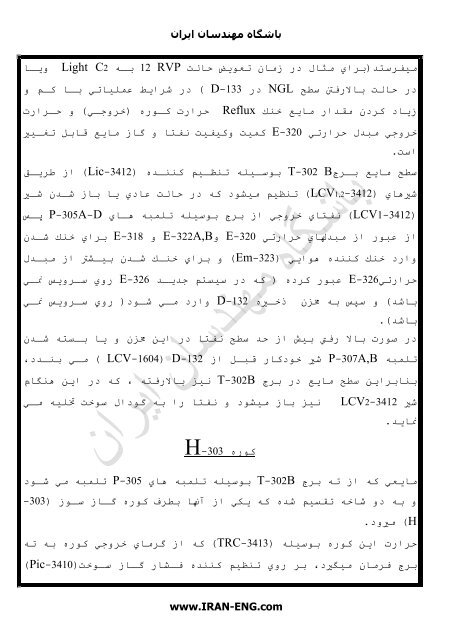 باشگاه مهندسان ايران
ميفرستد(براي مثال در زمان تعويض حالت 12 RVP به Light C2 ويا
در حالت بالارفتن سطح NGL در D-133 ) در شرايط عملياتي با کم و
زياد کردن مقدار مايع خنك Reflux حرارت کوره (خروجي) و حرارت
خروجي مبدل حرارتي E-320 کميت وکيفيت نفتا و گاز مايع قابل تغيير
است.
سطح مايع برجT-302 B بوسيله تنظيم کننده (Lic-3412) از طريق
شيرهاي (LCV1,2-3412) تنظيم ميشود که در حالت عادي يا باز شدن شير
(LCV1-3412) نفتاي خروجي از برج بوسيله تلمبه هاي P-305A-D پس
از عبور از مبدلهاي حرارتي E-320 وE-322A,B و E-318 براي خنك شدن
وارد خنك کننده هوايي (Em-323) و براي خنك شدن بيشتر از مبدل
حرارتيE-326 عبور کرده ( که در سيستم جديد E-326 روي سرويس نمي
باشد) و سپس به مخزن ذخيره D-132 وارد مي شود( روي سرويس نمي
باشد).
در صورت بالا رفتن بيش از حد سطح نفتا در اين مخزن و يا بسته شدن
تلمبه P-307A,B شير خودکار قبل از D-132 (LCV-1604 ) مي بندد،
بنابراين سطح مايع در برج T-302B نيز بالارفته ، که در اين هنگام
شير LCV2-3412 نيز باز ميشود و نفتا را به گودال سوخت تخليه مي
نمايد.
کوره H-303
مايعي که از ته برج T-302B بوسيله تلمبه هاي P-305 تلمبه مي شود
و به دو شاخه تقسيم شده که يکي از آنها بطرف کوره گاز سوز (303-
H) ميرود.
حرارت اين کوره بوسيله (TRC-3413) که از گرماي خروجي کوره به ته
برج فرمان ميگيرد، بر روي تنظيم کننده فشار گاز سوخت(Pic-3410)
www.IRAN-ENG.com